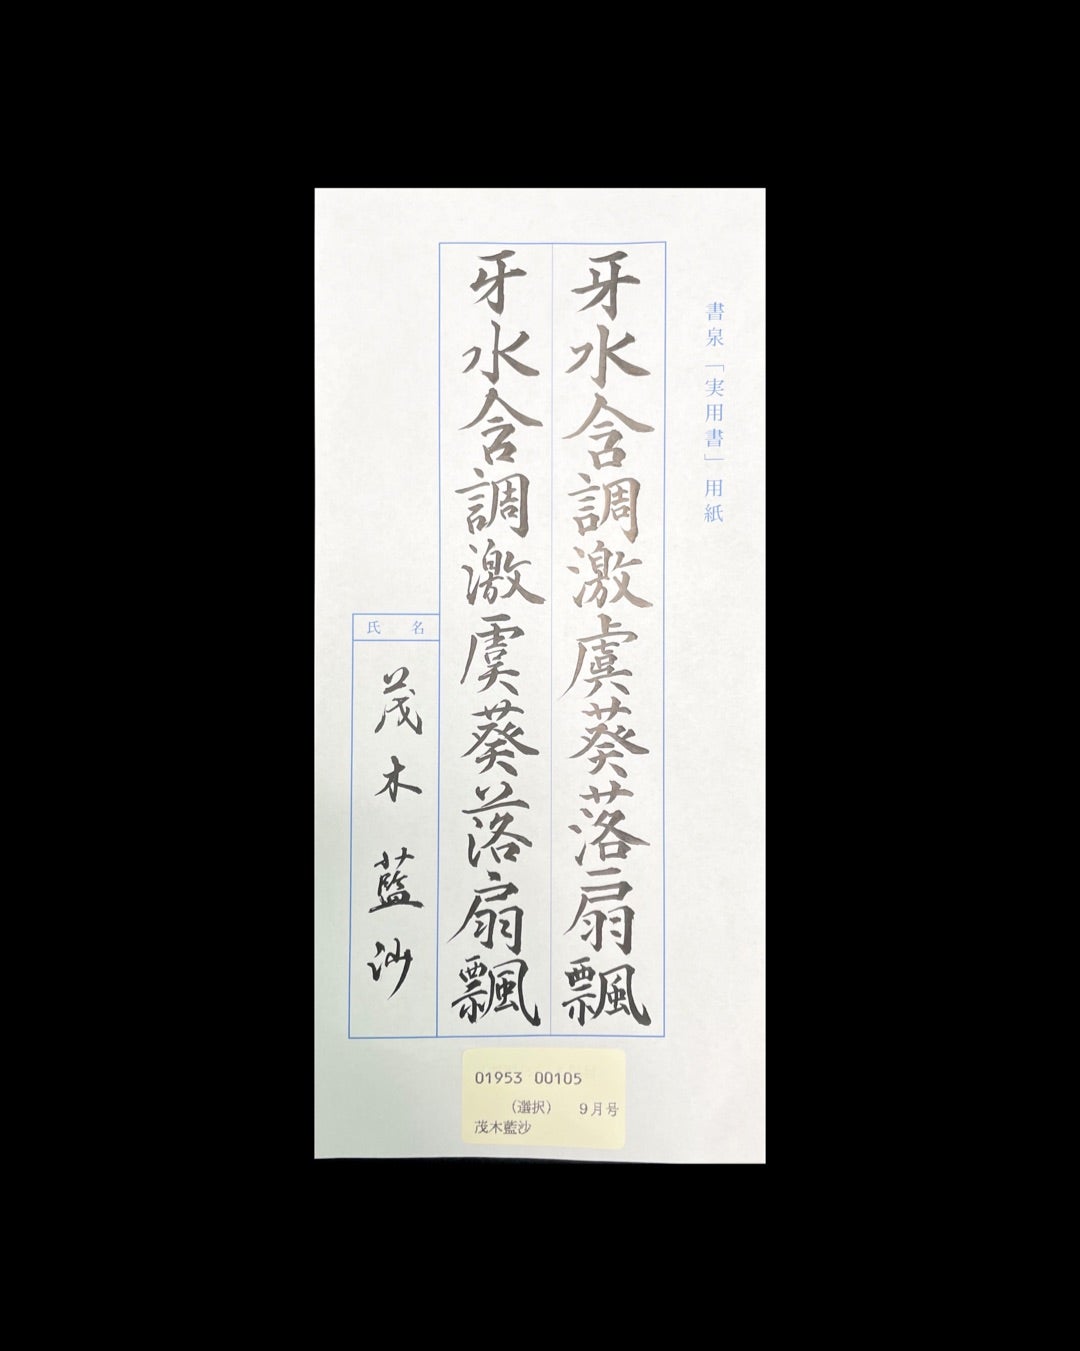 書泉「実用書」用紙
牙水含調激虞葵落扇飄
牙水含調激虞葵落扇飄
氏 名
茂木藍沙
01953 00105
（選択） 9月号
茂木藍沙